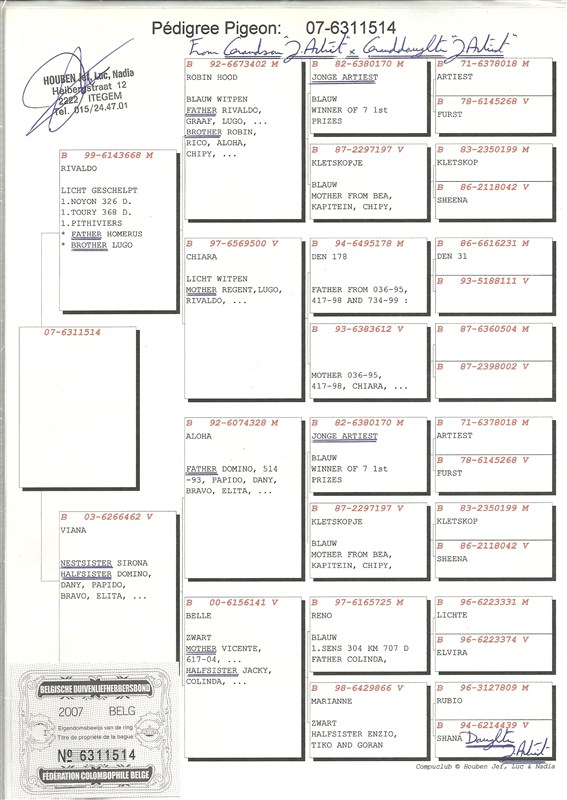 Pédigree Pigeon: 07-6311514
From Grandson "J. Artist" x Granddaughter "J. Artist"
HOUBEN Jef, Luc, Nadia
Heibergstraat 12
2222 ITEGEM
Tel. 015/24.47.01
07-6311514
B 99-6143668 M
RIVALDO
LICHT GESCHELPT
1.NOYON 326 D.
1.TOURY 368 D.
1.PITHIVIERS
* FATHER HOMERUS
* BROTHER LUGO
B 03-6266462 V
VIANA
NESTSISTER SIRONA
HALFSISTER DOMINO,
DANY, PAPIDO,
BRAVO, ELITA, ...
B 92-6673402 M
ROBIN HOOD
BLAUW WITPEN
FATHER RIVALDO,
GRAAF, LUGO, ...
BROTHER ROBIN,
RICO, ALOHA,
CHIPY, ...
B 97-6569500 V
CHIARA
LICHT WITPEN
MOTHER REGENT,LUGO,
RIVALDO, ...
B 92-6074328 M
ALOHA
FATHER DOMINO, 514
-93, PAPIDO, DANY,
BRAVO, ELITA, ...
B 00-6156141 V
BELLE
ZWART
MOTHER VICENTE,
617-04, ...
HALFSISTER JACKY,
COLINDA, ...
B 82-6380170 M
JONGE ARTIEST
BLAUW
WINNER OF 7 1st
PRIZES
B 87-2297197 V
KLETSKOPJE
BLAUW
MOTHER FROM BEA,
KAPITEIN, CHIPY,
B 94-6495178 M
DEN 178
FATHER FROM 036-95,
417-98 AND 734-99 :
B 93-6383612 V
MOTHER 036-95,
417-98, CHIARA, ...
B 82-6380170 M
JONGE ARTIEST
BLAUW
WINNER OF 7 1st
PRIZES
B 87-2297197 V
KLETSKOPJE
BLAUW
MOTHER FROM BEA,
KAPITEIN, CHIPY,
B 97-6165725 M
RENO
BLAUW
1.SENS 304 KM 707 D
FATHER COLINDA,
B 98-6429866 V
MARIANNE
ZWART
HALFSISTER ENZIO,
TIKO AND GORAN
B 71-6378018 M
ARTIEST
B 78-6145268 V
FURST
B 83-2350199 M
KLETSKOP
B 86-2118042 V
SHEENA
B 86-6616231 M
DEN 31
B 93-5188111 V
B 87-6360504 M
B 87-2398002 V
B 71-6378018 M
ARTIEST
B 78-6145268 V
FURST
B 83-2350199 M
KLETSKOP
B 86-2118042 V
SHEENA
B 96-6223331 M
LICHTE
B 96-6223374 V
ELVIRA
B 96-3127809 M
RUBIO
B 94-6214439 V
SHANA Daughter
J. Artist
Compuclub © Houben Jef, Luc & Nadia
BELGISCHE DUIVENLIEFHEBBERSBOND
2007 BELG
Eigendomsbewijs van de ring
Titre de propriété de la bague
No 6311514
FÉDÉRATION COLOMBOPHILE BELGE